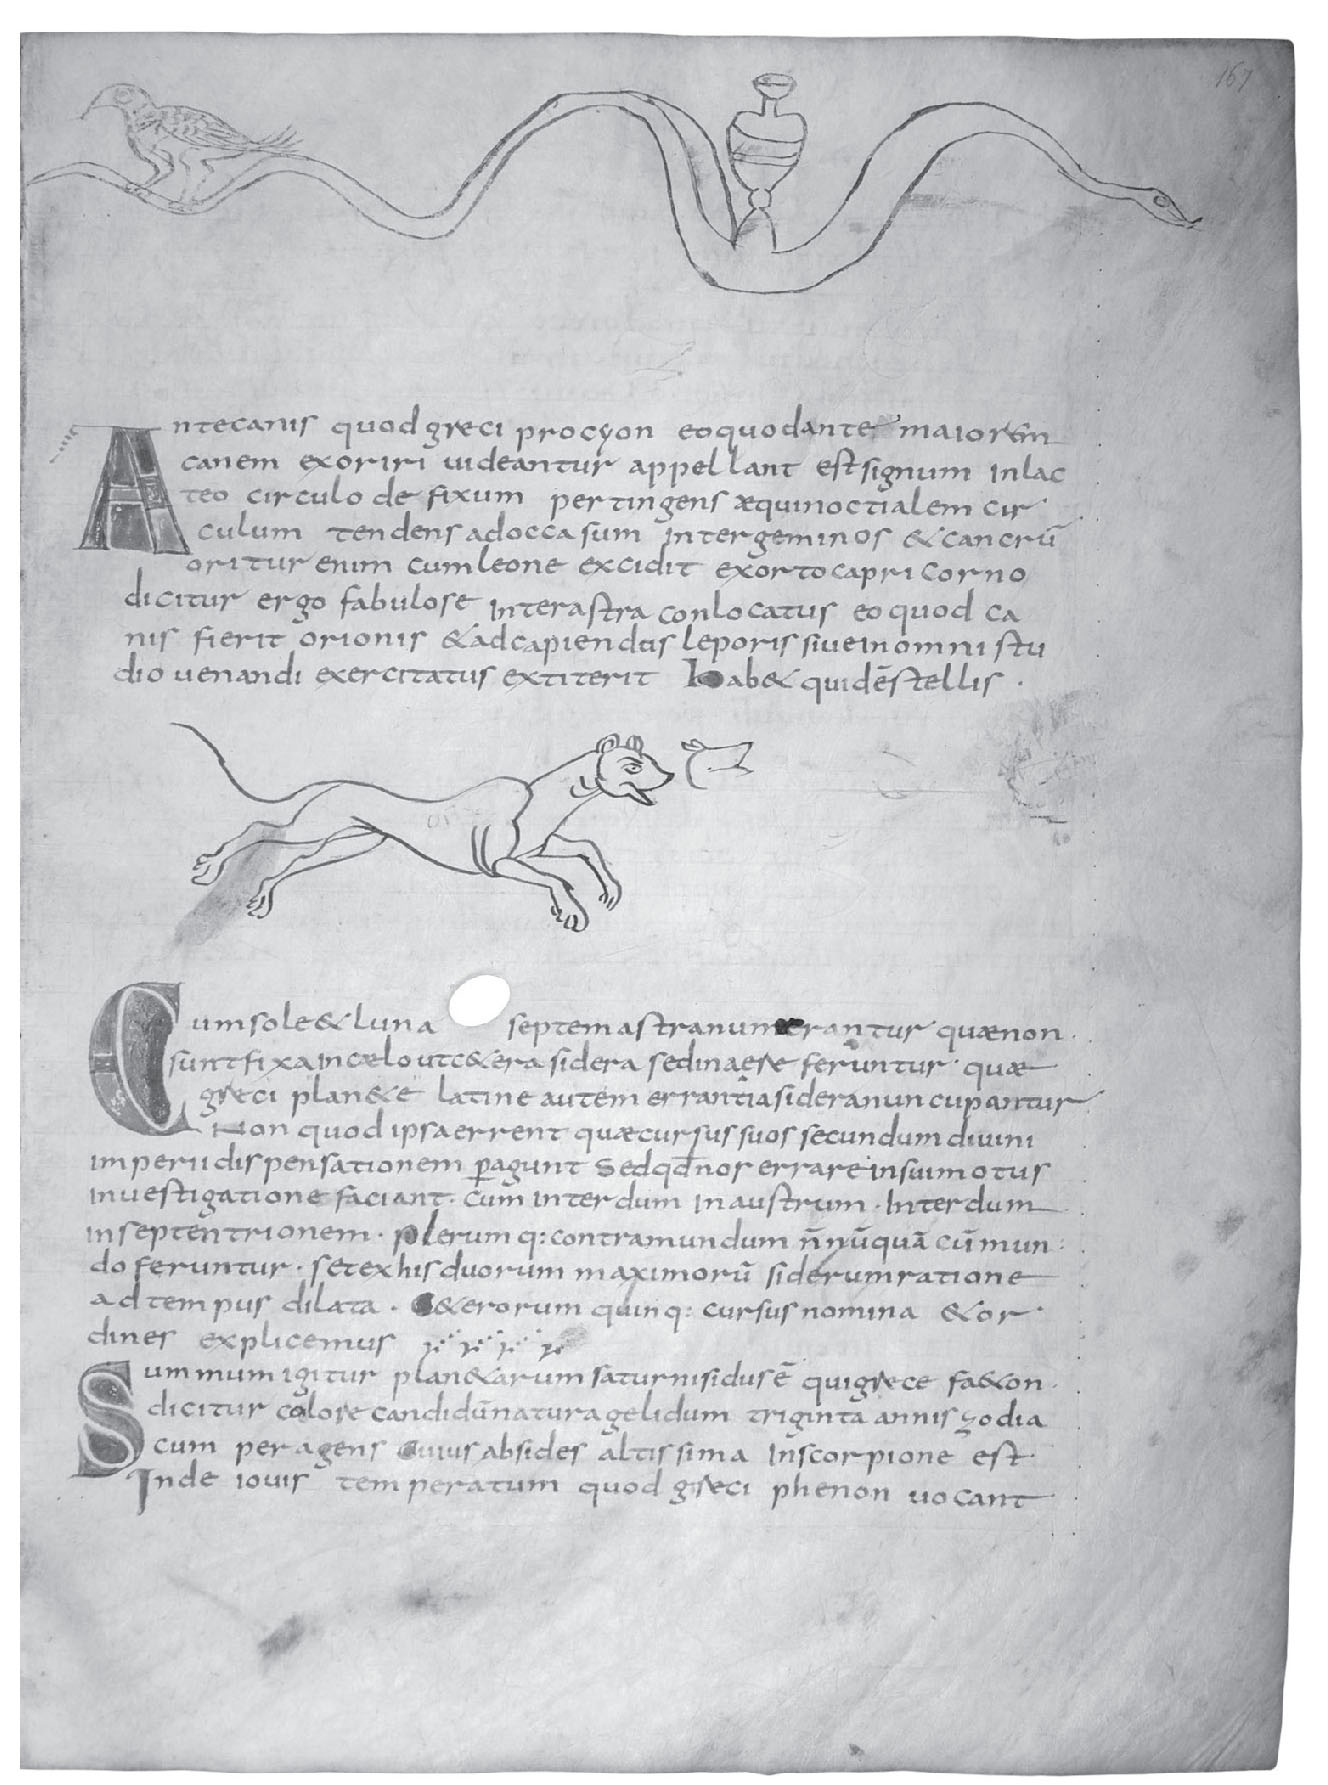 167
Antecanis quod greci procyon eoquodante maiorem
canem exoriri uideantur appellant est signum inlac
teo circulo defixum pertingens æquinoctialem cir
culum tendens adoccasum intergeminos & cancrū
oritur enim cumleone excidit exortocapricorno
dicitur ergo fabulose interastra conlocatus eoquod ca
nis fierit orionis &adcapiendus leporis siueinomni stu
dio uenandi exercitatus extiterit hab& quidē stellis ·
Cumsole&luna septem astranumerantur quænon
suntfixaincæloutc&era sidera sedinaere feruntur quæ
greci plan&e latine autem errantiasideranuncupantur
Non quodipsaerrent quæcursussuos secundum diuini
imperii dispensationem pagunt sedqd nos errareinsuimotus
inuestigatione faciant · cum interdum inaustrum · Interdum
inseptentrionem · plerumq: contramundum n̄nūquā cū mun
do feruntur · setexhisduorum maximorū siderumratione
adtempus dilata · c&erorum quinq: cursusnomina &or
dines explicemus
Summum igitur plan&arum saturnisidusē quigrece fa&on
dicitur colore candidūnaturagelidum triginta annis zodia
cum peragens cuiusabsides altissima inscorpione est
Inde iouis temperatum quod greci phenon uocant